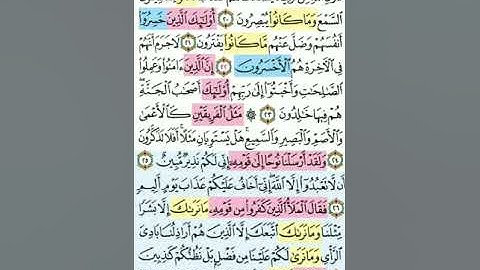 السَّمْعَ وَمَا كَانُوا۟ يُبْصِرُونَ ٢٠ أُو۟لَٰٓئِكَ ٱلَّذِينَ خَسِرُوٓا۟
أَنفُسَهُمْ وَضَلَّ عَنْهُم مَّا كَانُوا۟ يَفْتَرُونَ ٢١ لَا جَرَمَ أَنَّهُمْ
فِى ٱلْءَاخِرَةِ هُمُ ٱلْأَخْسَرُونَ ٢٢ إِنَّ ٱلَّذِينَ ءَامَنُوا۟ وَعَمِلُوا۟
ٱلصَّٰلِحَٰتِ وَأَخْبَتُوٓا۟ إِلَىٰ رَبِّهِمْ أُو۟لَٰٓئِكَ أَصْحَٰبُ ٱلْجَنَّةِ
هُمْ فِيهَا خَٰلِدُونَ ٢٣ ۞ مَثَلُ ٱلْفَرِيقَيْنِ كَٱلْأَعْمَىٰ
وَٱلْأَصَمِّ وَٱلْبَصِيرِ وَٱلسَّمِيعِ هَلْ يَسْتَوِيَانِ مَثَلًا أَفَلَا تَذَكَّرُونَ
٢٤ وَلَقَدْ أَرْسَلْنَا نُوحًا إِلَىٰ قَوْمِهِۦٓ إِنِّى لَكُمْ نَذِيرٌ مُّبِينٌ ٢٥
أَن لَّا تَعْبُدُوٓا۟ إِلَّا ٱللَّهَ إِنِّىٓ أَخَافُ عَلَيْكُمْ عَذَابَ يَوْمٍ أَلِيمٍ
٢٦ فَقَالَ ٱلْمَلَأُ ٱلَّذِينَ كَفَرُوا۟ مِن قَوْمِهِۦ مَا نَرَىٰكَ إِلَّا بَشَرًا
مِّثْلَنَا وَمَا نَرَىٰكَ ٱتَّبَعَكَ إِلَّا ٱلَّذِينَ هُمْ أَرَاذِلُنَا بَادِىَ
ٱلرَّأْىِ وَمَا نَرَىٰ لَكُمْ عَلَيْنَا مِن فَضْلٍۭ بَلْ نَظُنُّكُمْ كَٰذِبِينَ